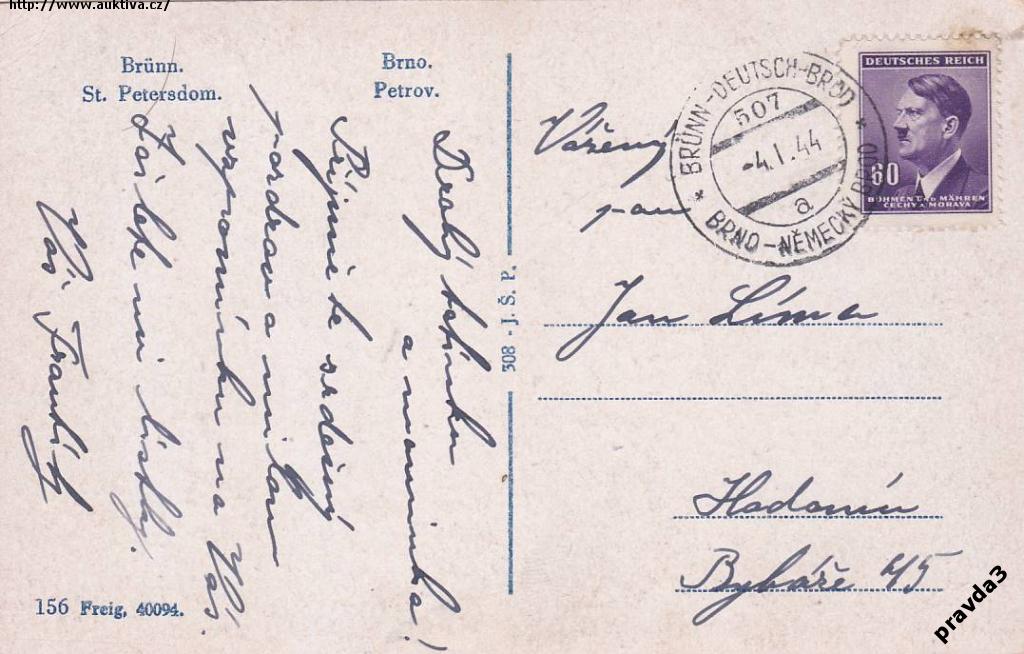 http://www.auktiva.cz/
Brünn.
St. Petersdom.
Brno.
Petrov.
Drahý tatínku
a maminko!
Přijměte srdečný
pozdrav a milou
vzpomínku na Vás.
Zašlete mi lístky.
Váš Frantík
156 Freig. 40094.
308 - J. Š. P.
BRÜNN-DEUTSCH-BROD
507
-4.I.44
a
BRNO-NĚMECKÝ BROD
DEUTSCHES REICH
60
BÖHMEN UND MÄHREN
ČECHY A MORAVA
Vážený
pan
Jan Líma
Hodonín
Rybáře 45
pravda3